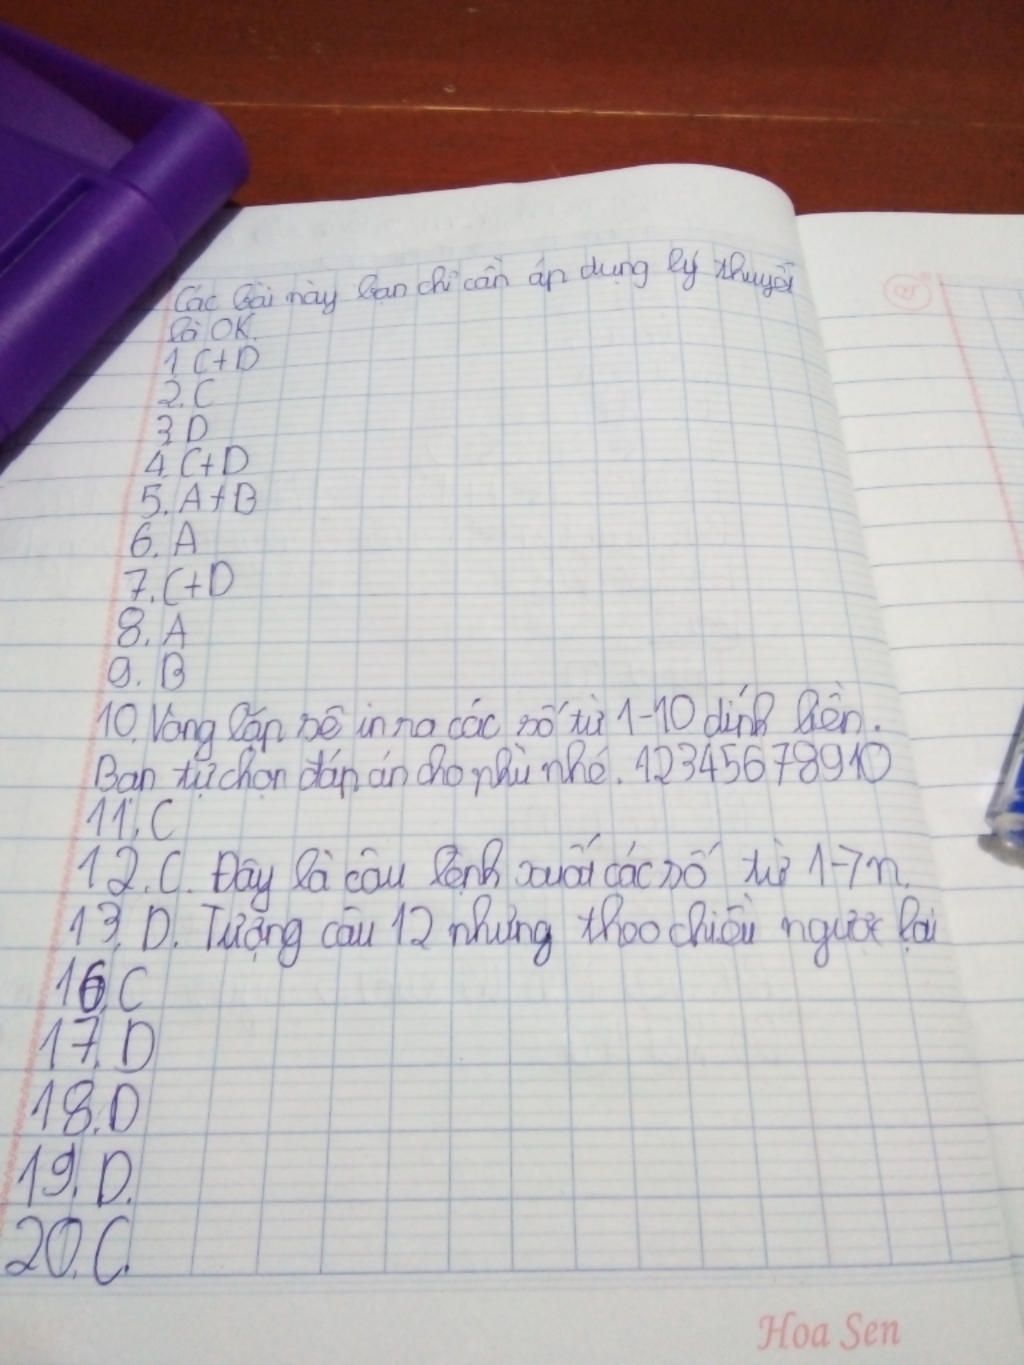 Các bài này bạn chỉ cần áp dụng lý thuyết
là OK.
1 C+D
2. C
3. D
4. C+D
5. A+B
6. A
7. C+D
8. A
9. B
10. Vòng lặp sẽ in ra các số từ 1-10 dính liền.
Bạn tự chọn đáp án cho phù nhé. 12345678910
11. C
12. C. Đây là câu lệnh xuất các số từ 1->n.
13. D. Tượng câu 12 nhưng theo chiều ngược lại
16. C
17. D
18. D
19. D.
20. C.
Hoa Sen